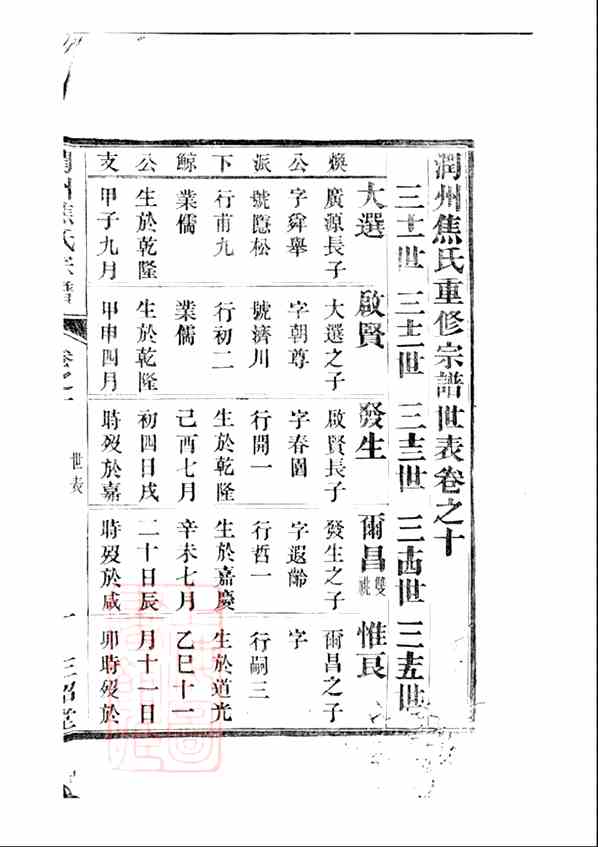 潤州焦氏重修宗譜世表卷之十
三十一世 三十二世 三十三世 三十四世 三十五世
煥公派下鯨公支
大選
廣源長子
字舜舉
號隱松
行甫九
業儒
生於乾隆
甲子九月
啟賢
大選之子
字朝尊
號濟川
行初二
業儒
生於乾隆
甲申四月
發生
啟賢長子
字春園
行開一
生於乾隆
己酉七月
初四日戌
時歿於嘉
爾昌 雙祧
發生之子
字遐齡
行哲一
生於嘉慶
辛未七月
二十日辰
時歿於咸
惟良
爾昌之子
字
行嗣三
生於道光
乙巳十一
月十一日
卯時歿於
潤州焦氏宗譜 卷之十 世表 一 三詔堂